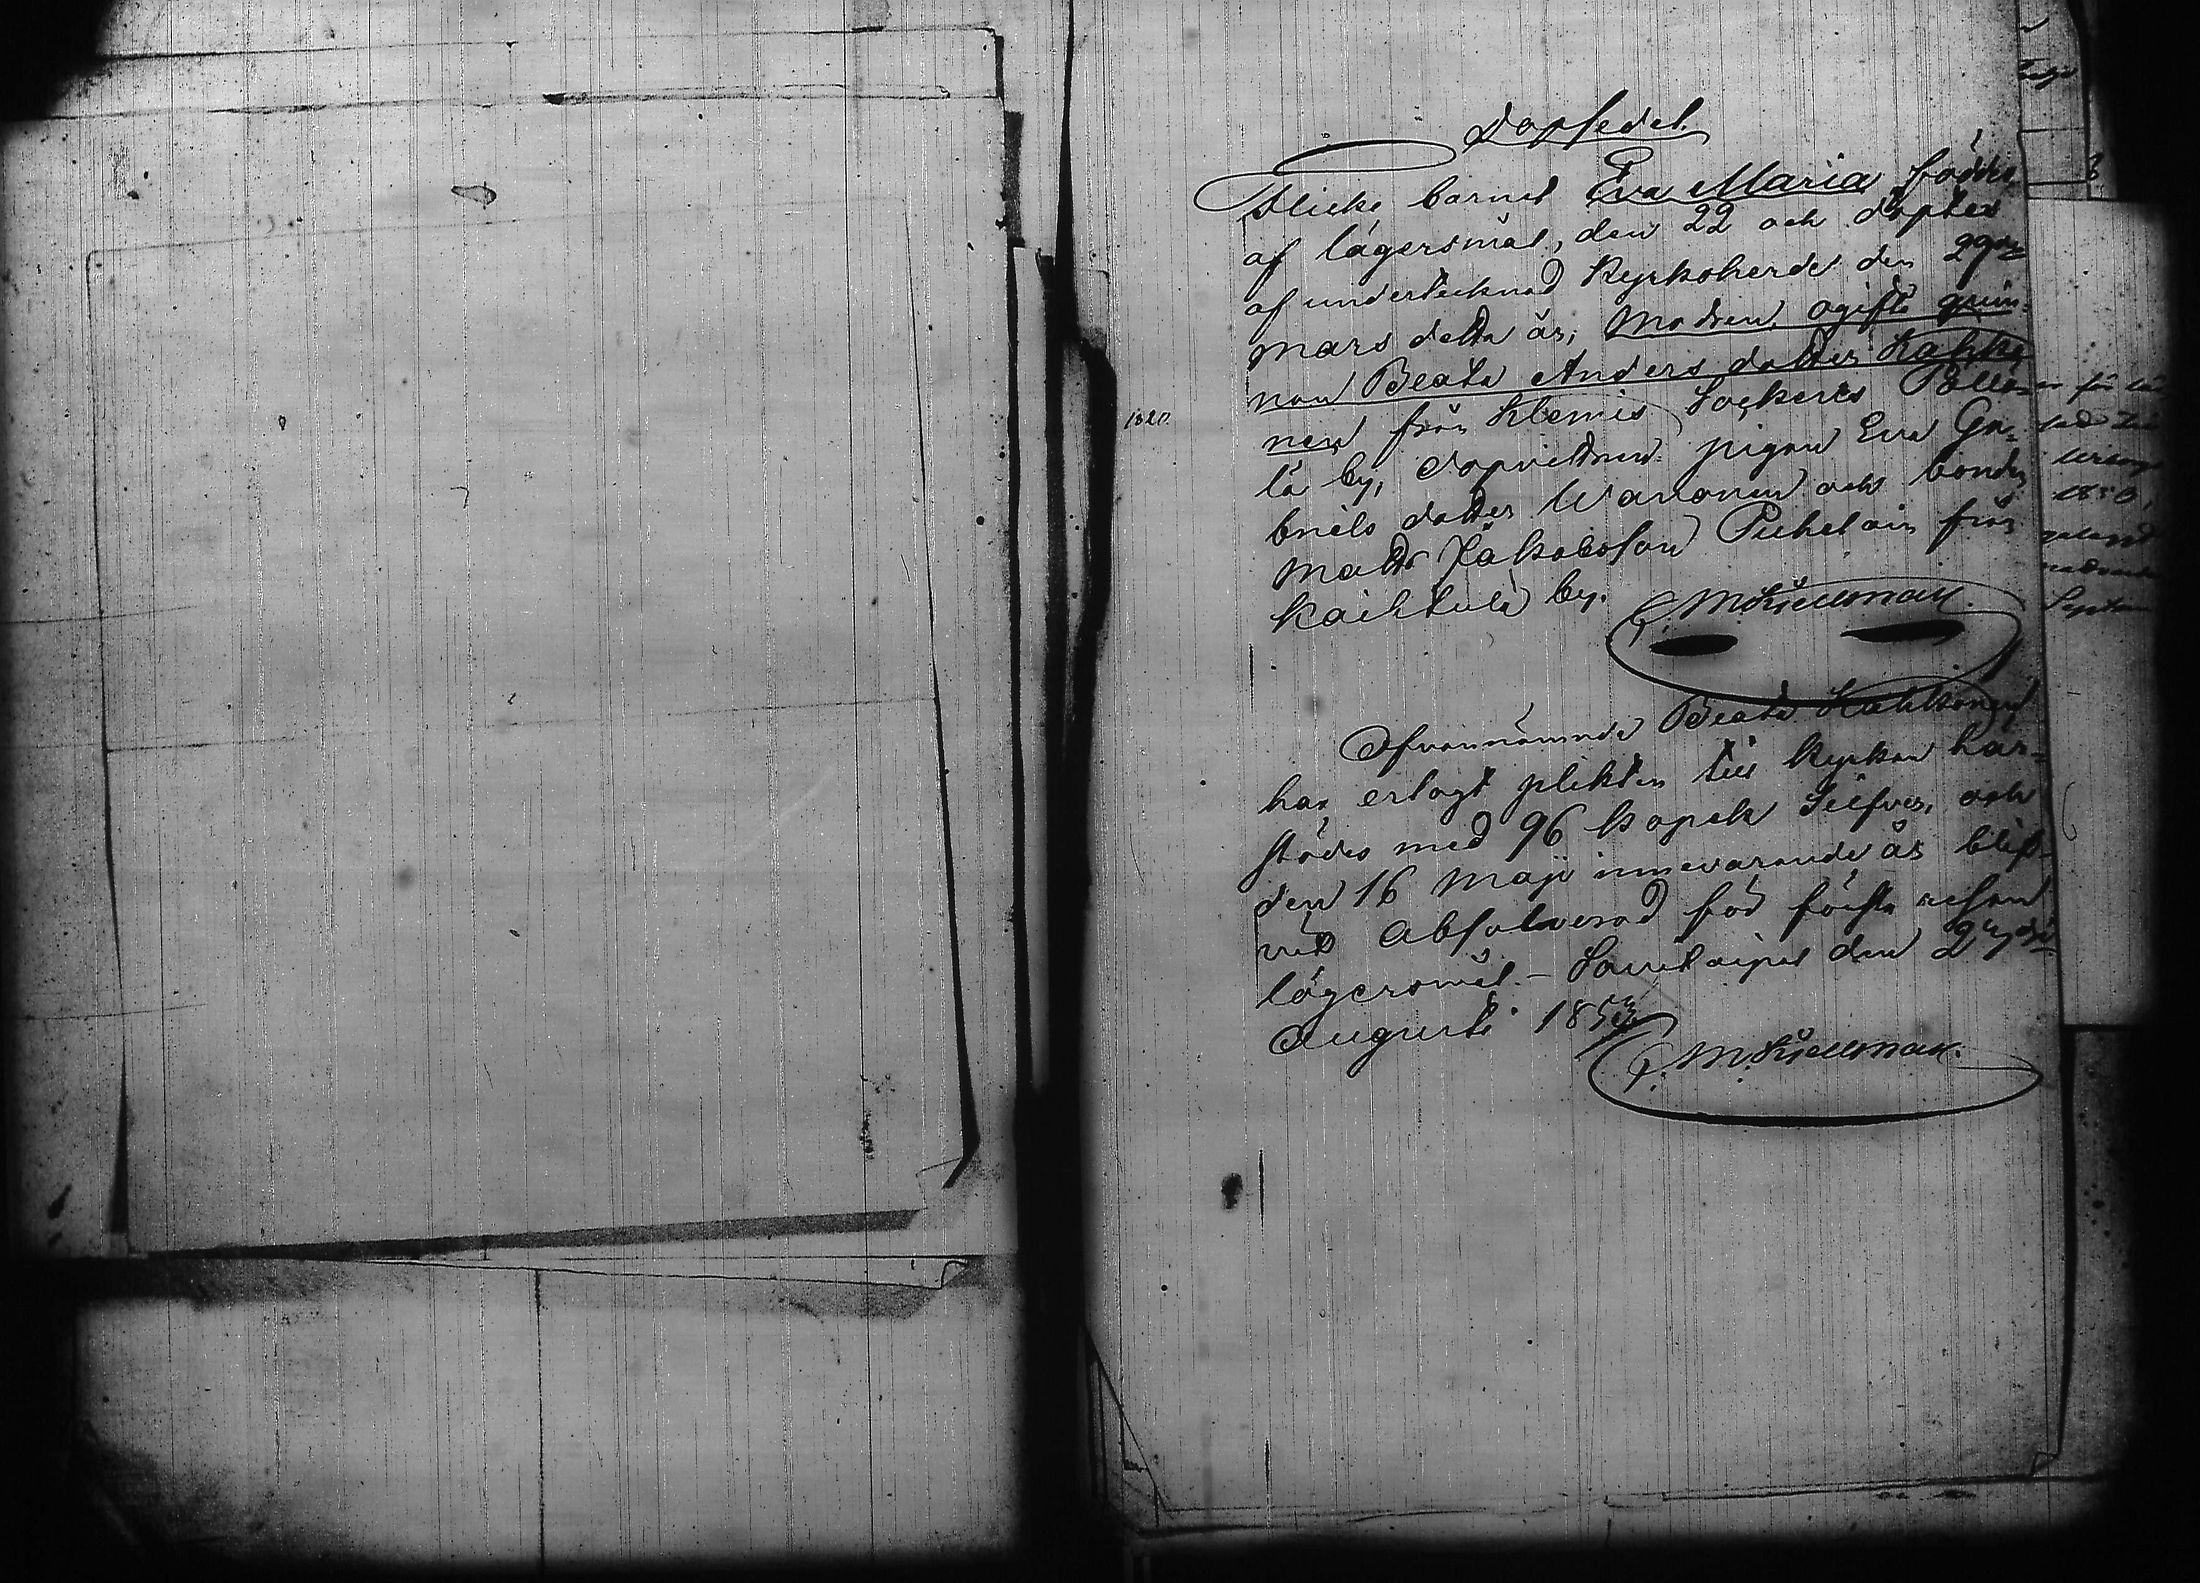 Dopsedel.
Flicke barnet Eva Maria föddes
af lägersmål, den 22 och döptes
af undertecknad Kyrkoherde den 29de
mars detta år; Modren, ogifta quin-
nan Beata Anders dotter Kahko
nen från Klemis Sockens Polla-
la by, dopvittnen: pigan Eva Ga-
briels dotter Wanonen och bonden
Matts Jakobsson Puhelain från
Kaihtula by.
C. M. Kiellman.
Ofvannämnde Beata Kahkonen
har erlagt plikten till Kyrkan här-
städes med 96 kopek Silfver, och
den 16 Maji innevarande år blif-
vit Absolverad för första resan
lägersmål. - Savitaipal den
Augusti 1853
C. M. Kiellman.
1820.